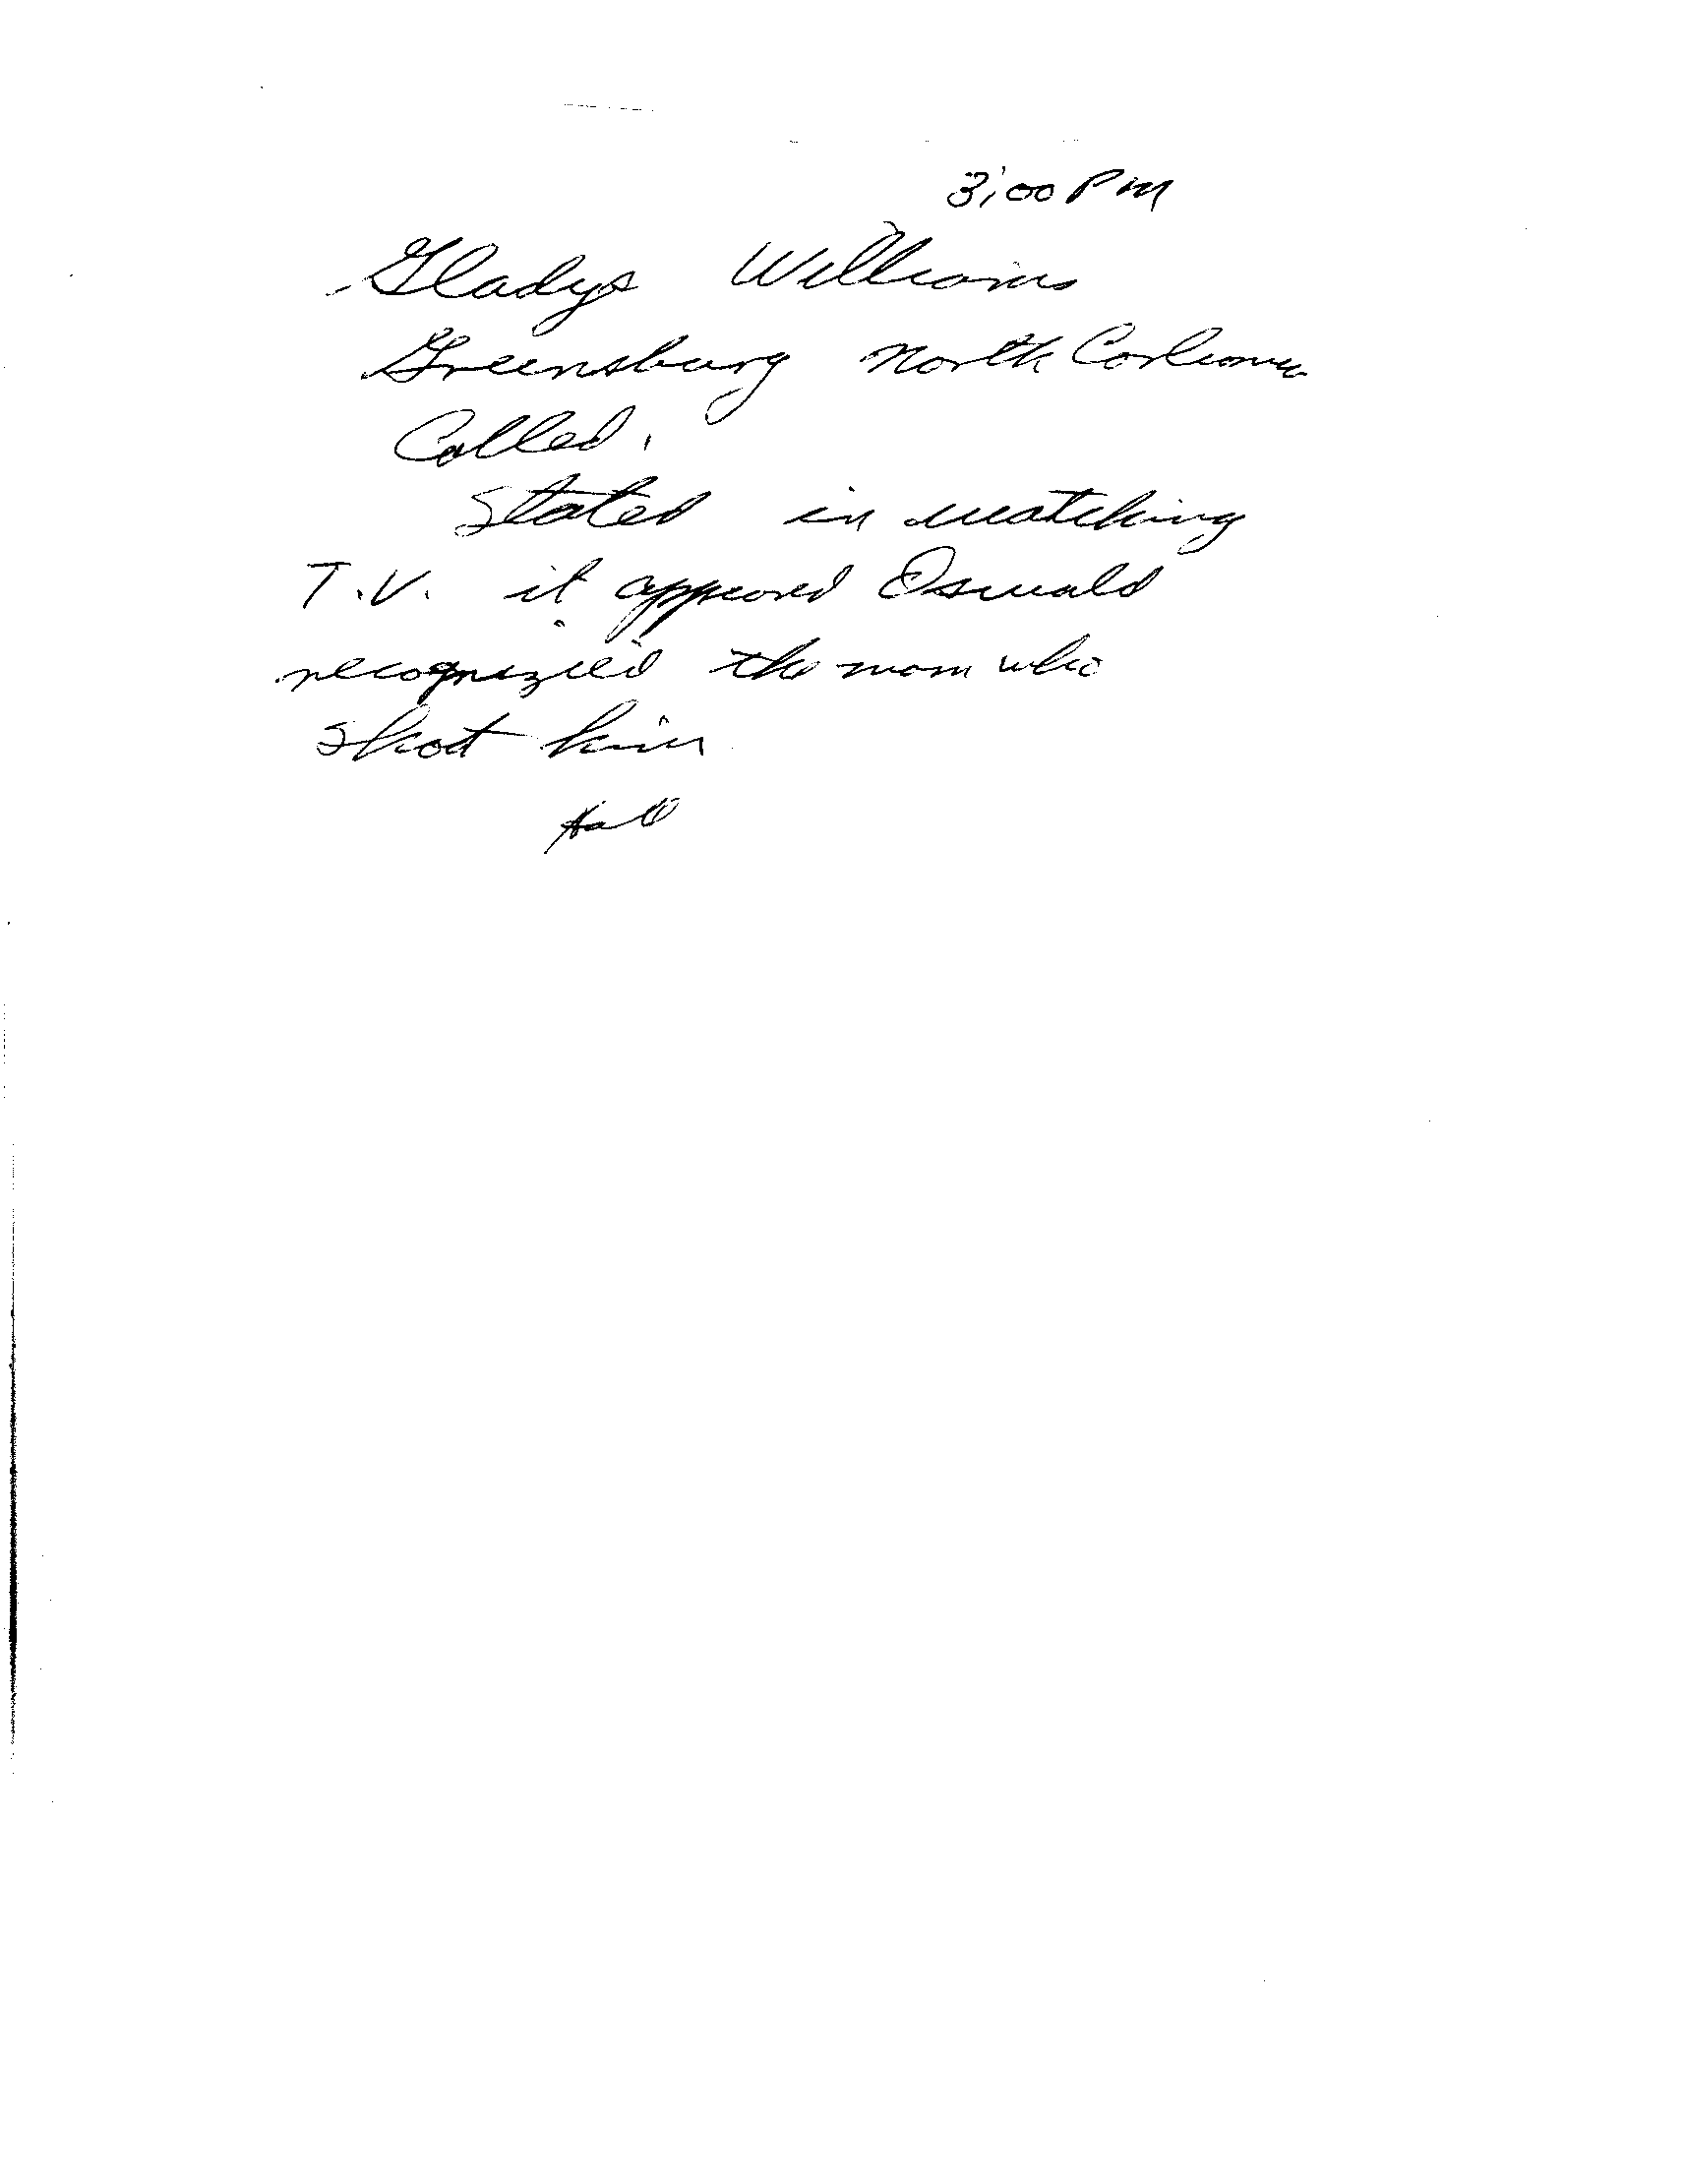 3:00 PM
Gladys Williams
Greensburg North Carolina
Called.
Stated in watching
T.V. it appeared Oswald
recognized the man who
shot him